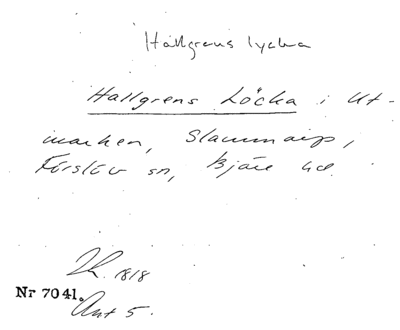 Hallgrens lycka
Hallgrens Löcka i Ut-
marken, Slammarp,
Förslöv sn, Bjäre hd.
1818
Nr 7041.
Akt 5.